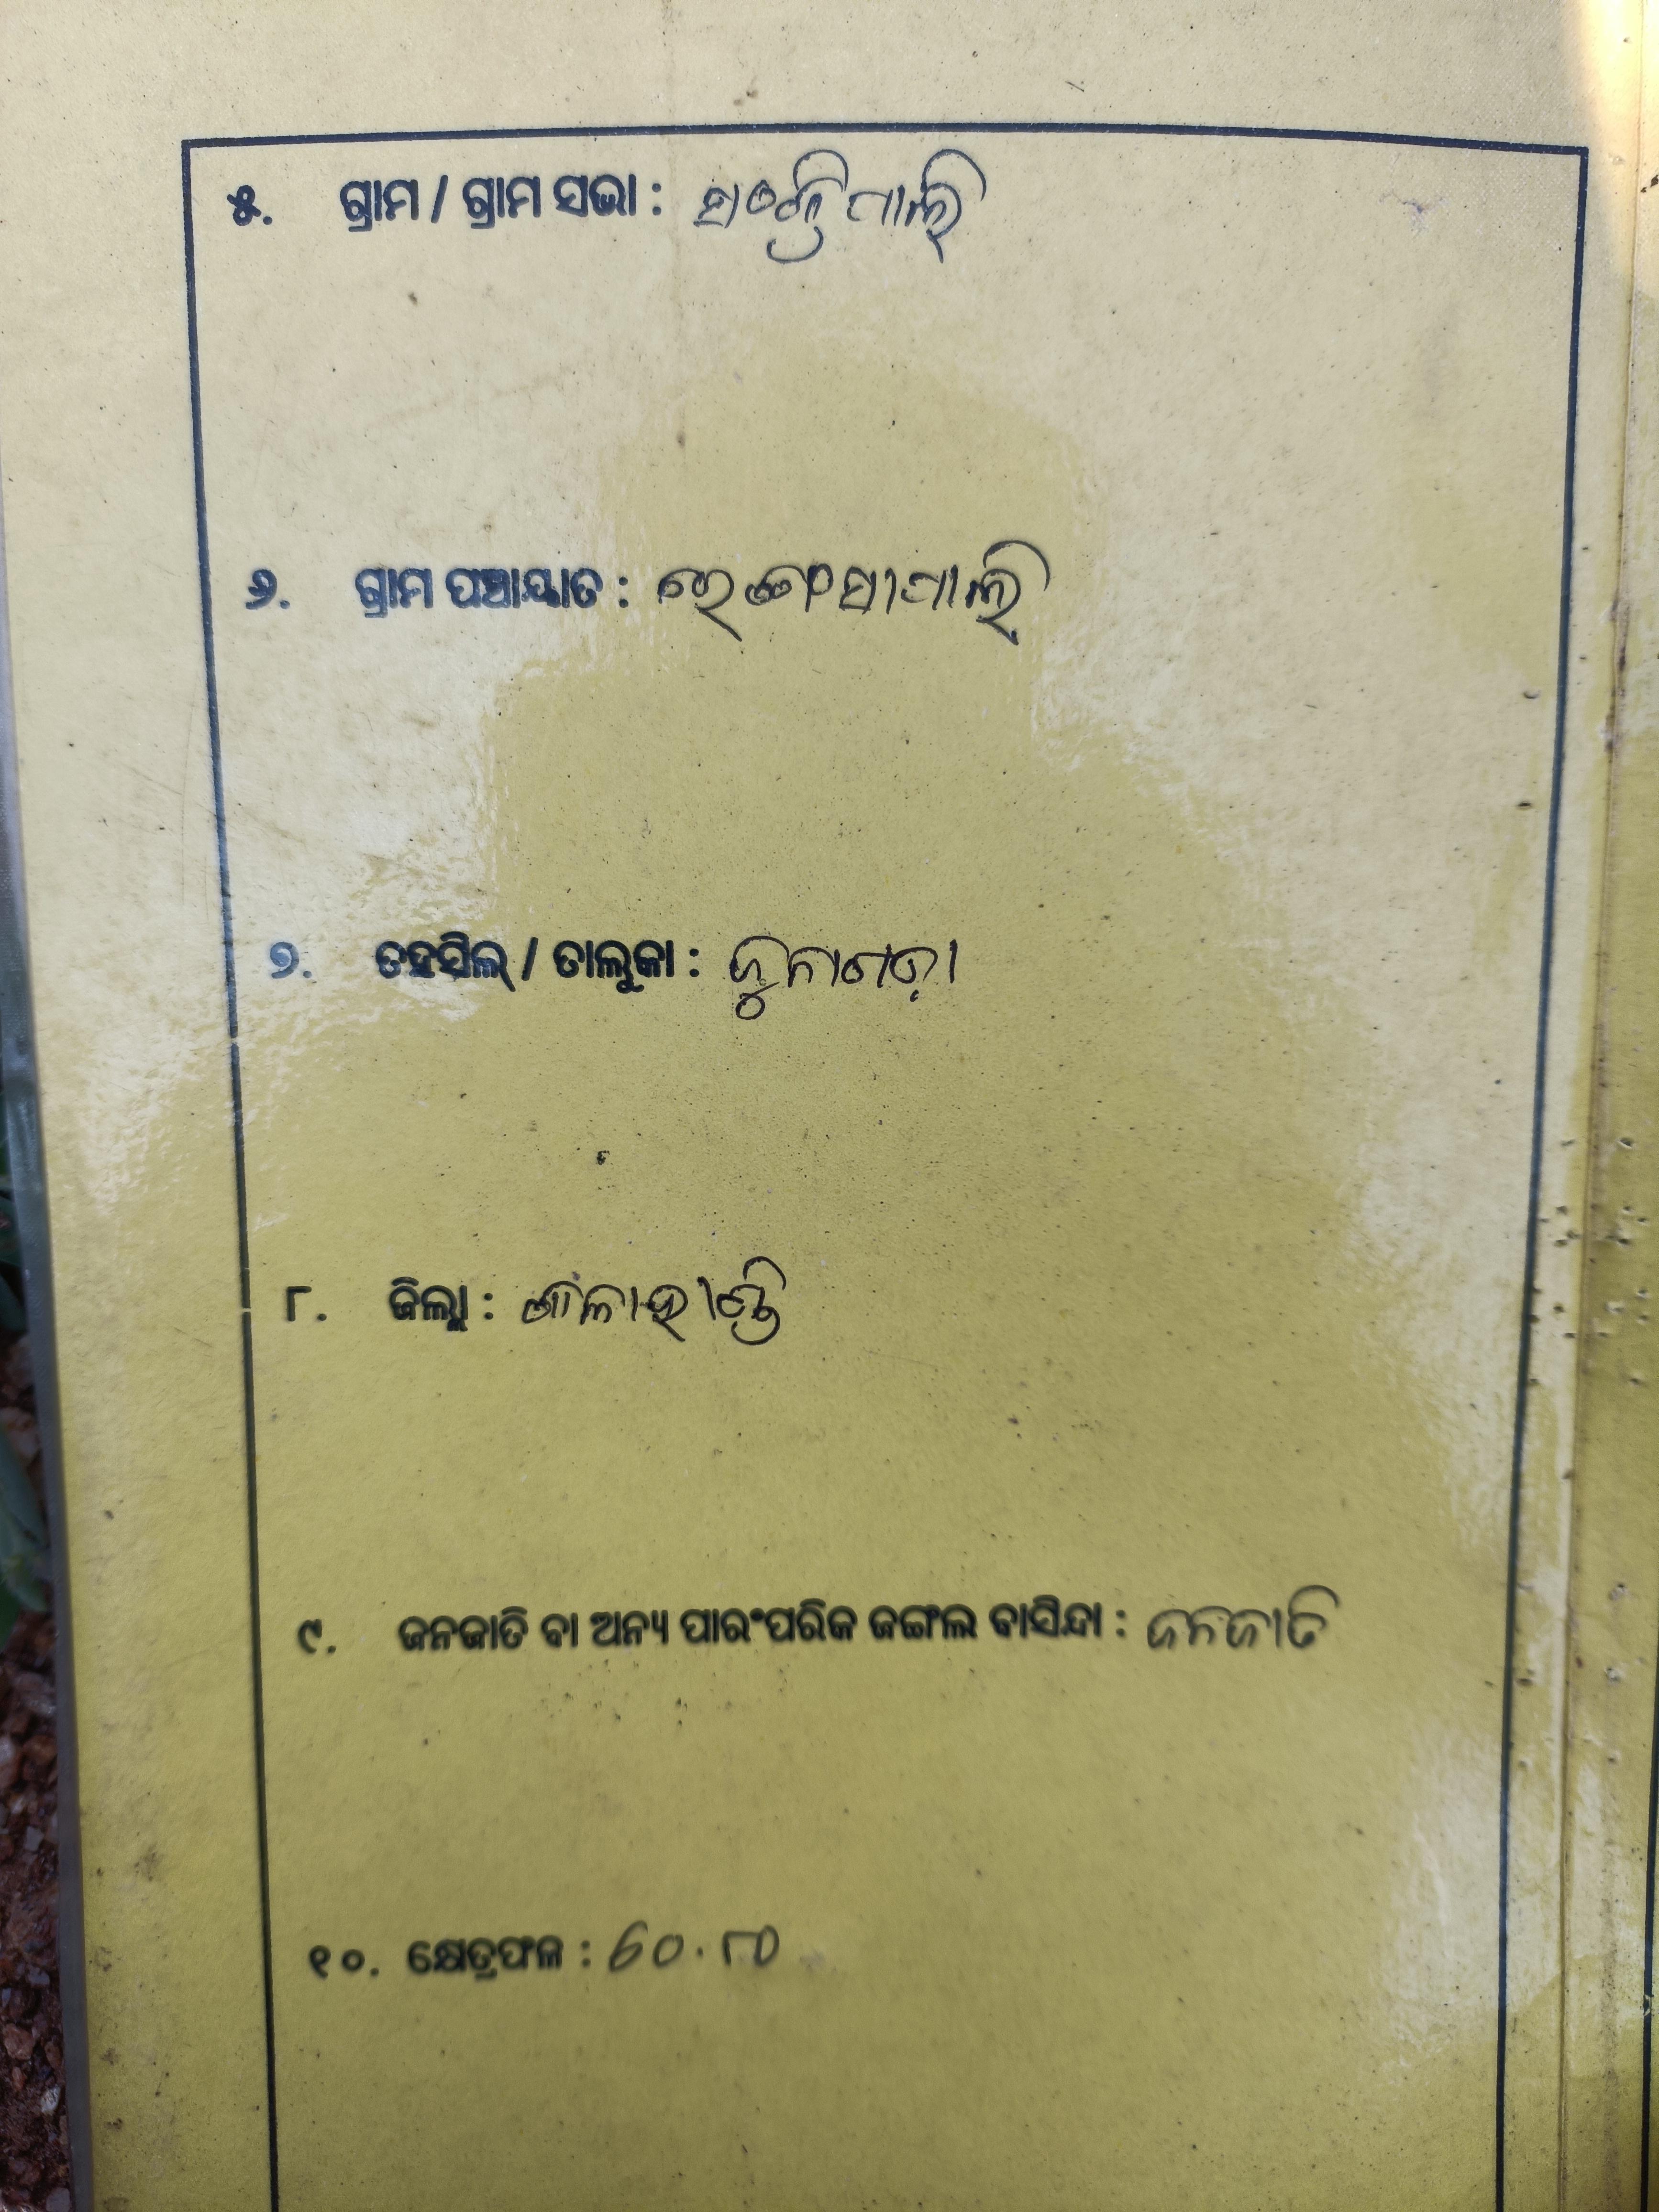 ୫. ଗ୍ରାମ / ଗ୍ରାମ ସଭା :
୬. ଗ୍ରାମ ପଞ୍ଚାୟାତ :
୭. ତହସିଲ୍ / ତାଲୁକା : ଜୁନାଗଡ଼
୮. ଜିଲ୍ଲା : କାଳାହାଣ୍ଡି
୯. ଜନଜାତି ବା ଅନ୍ୟ ପାରଂପରିକ ଜଙ୍ଗଲ ବାସିନ୍ଦା : ଜନଜାତି
୧୦. କ୍ଷେତ୍ରଫଳ :